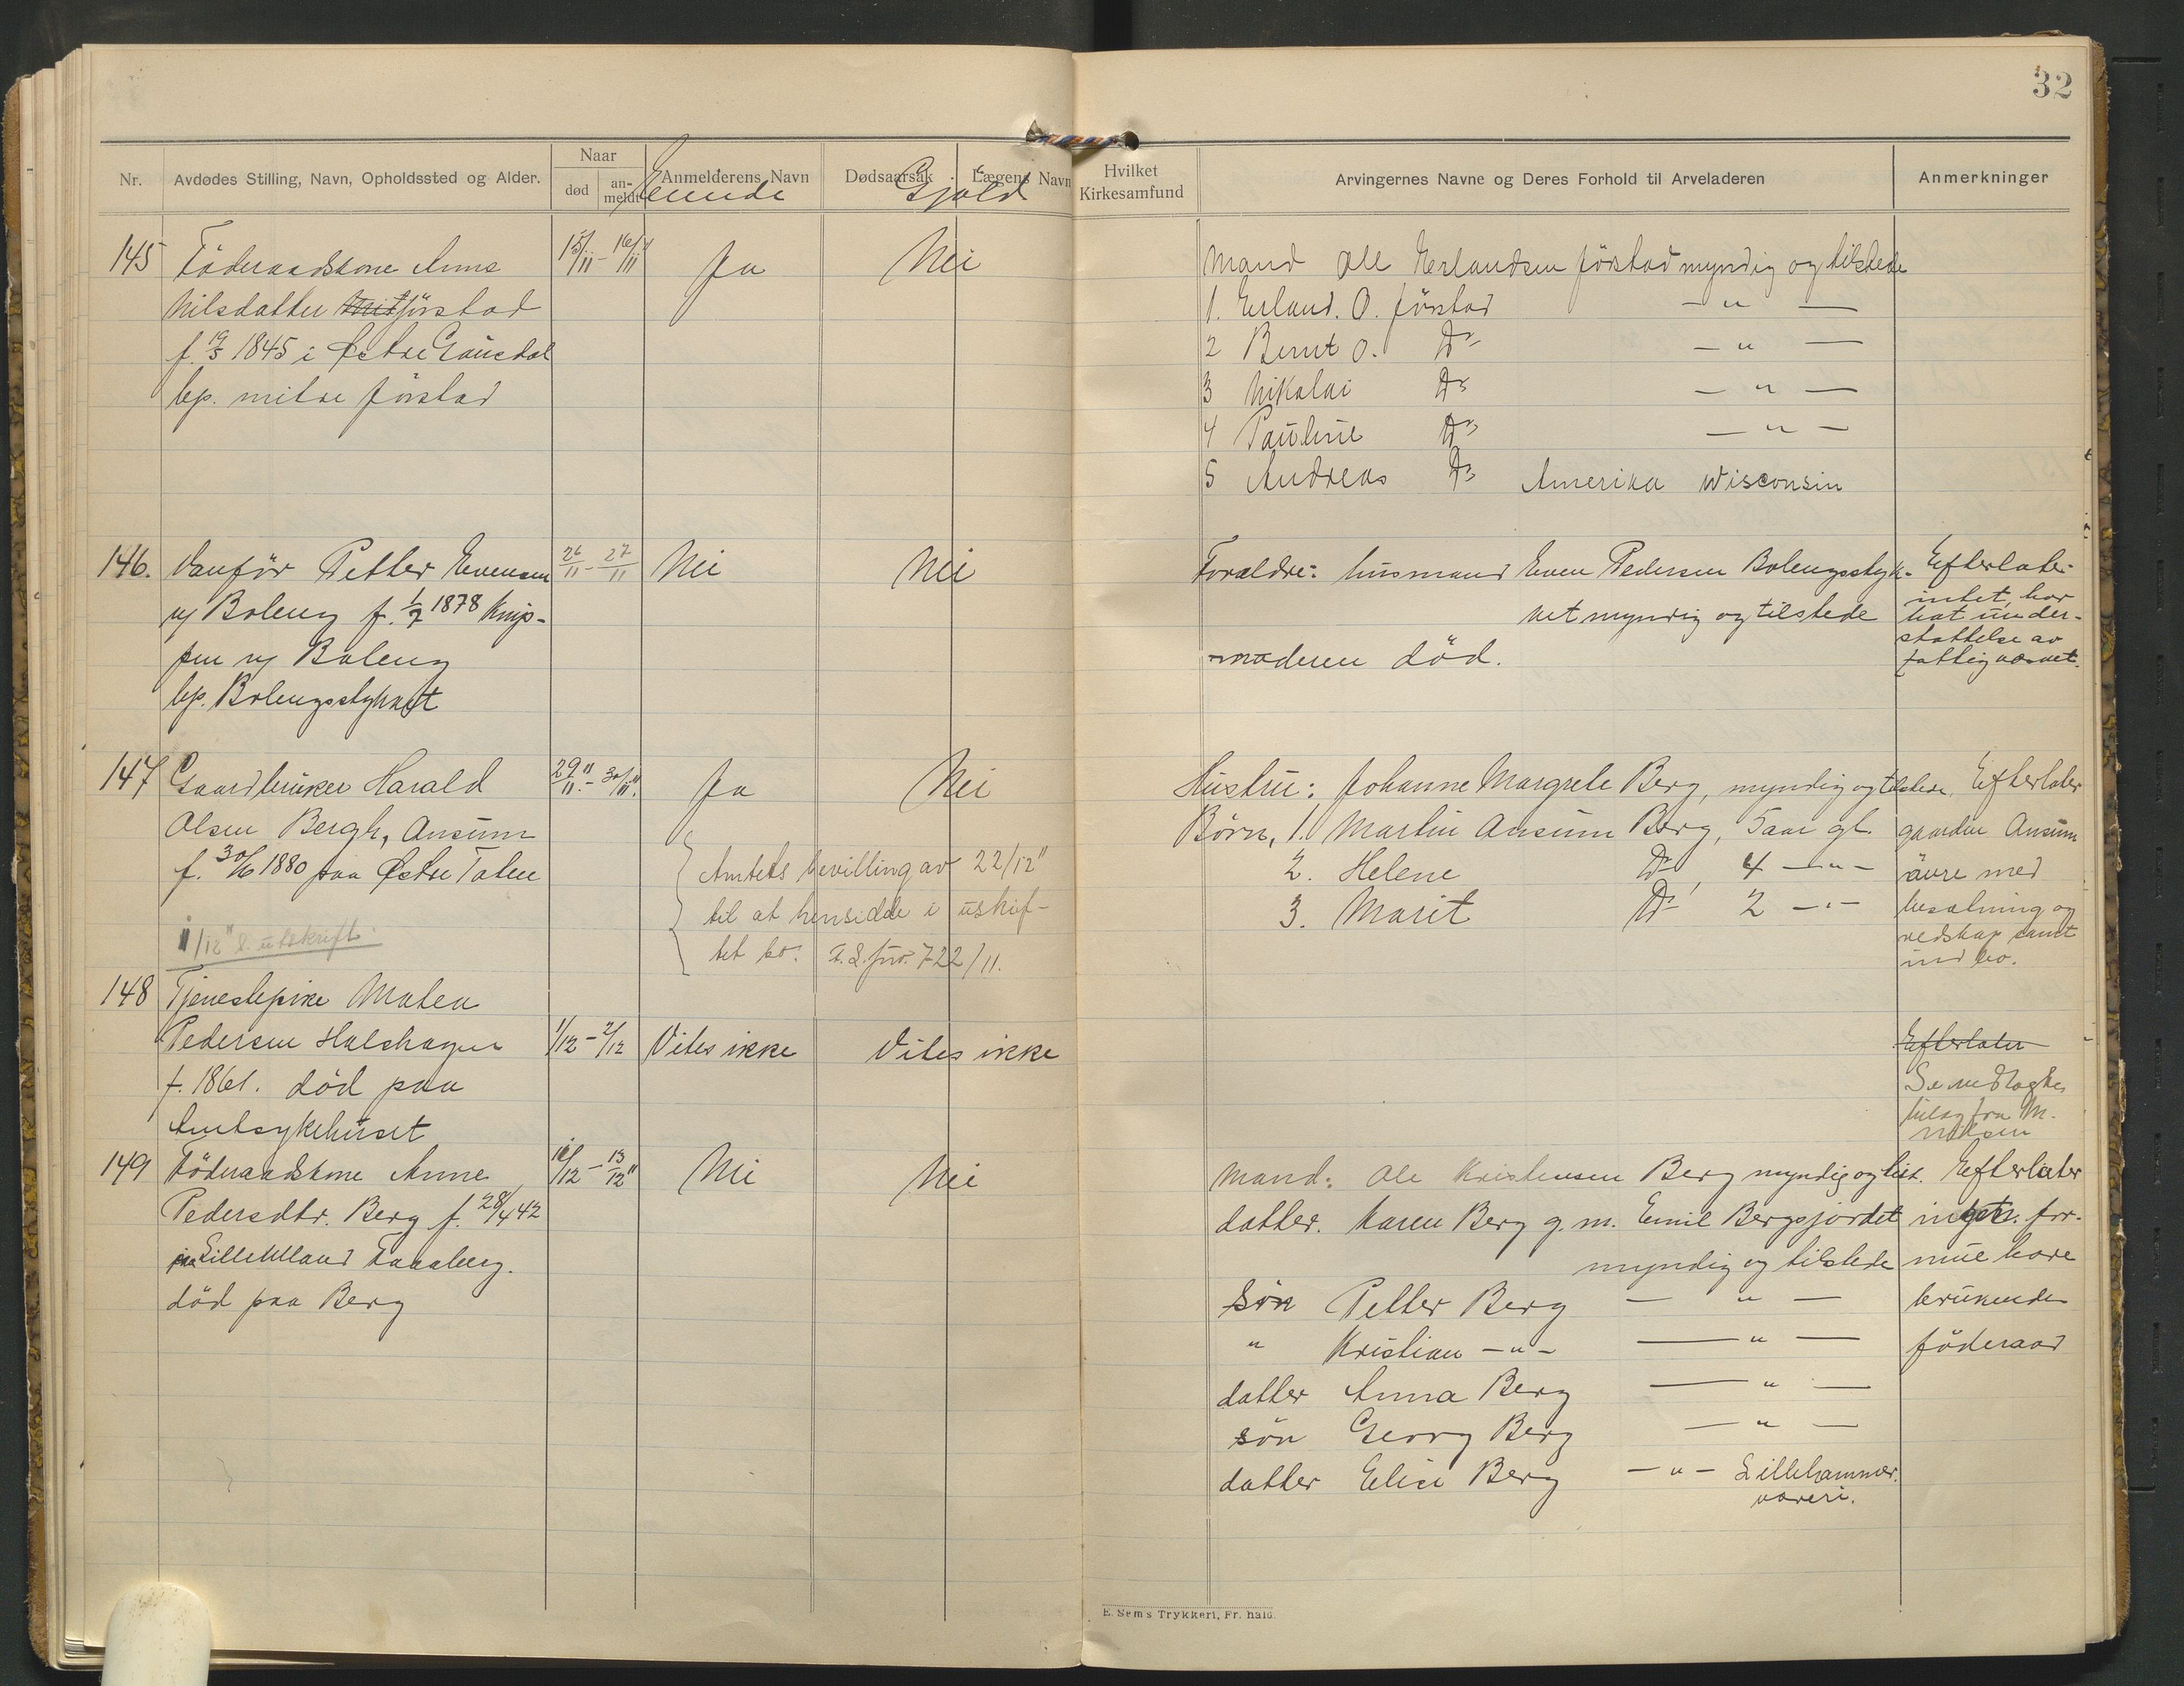 32
Nr.
Avdødes Stilling, Navn, Opholdssted og Alder.
Naar
død
an-
meldt
Anmelderens Navn
Dødsaarsak
Lægens Navn
Hvilket
Kirkesamfund
Arvingernes Navne og Deres Forhold til Arveladeren
Anmerkninger
Eiende
Gjæld
145
Föderaadskone Anne
Nilsdatter Jörstad
f. 19/5 1845 i Østre Gausdal
bp. mitre Jörstad
15/11 - 16/11
Ja
Nei
Mand Ole Erlandsen Jörstad myndig og tilstede
1. Erland. O. Jörstad — " —
2 Bernt O. Do — " —
3 Nikolai Do — " —
4 Pauline Do — " —
5 Andreas Do Amerika Wisconsin
146.
Vanför Petter Evensen
u/ Boleng f. 1/7 1878 Knip-
pen u/ Boleng
bp. Bolengsstykket
26/11 - 27/11
Nei
Nei
Foreldre: husmand Even Pedersen Bolengsstyk-
ket myndig og tilstede
moderen död.
Efterlater
intet, har
hat under-
støttelse av
fattigvæsnet.
147
Gaardbruker Harald
Olsen Bergh, Ansum
f. 30/6 1880 paa Østre Toten
11/12 " b. utskrift.
29/11" - 30/11"
Ja
Nei
Amtets bevilling av 22/12"
til at hensidde i uskif-
tet bo. 722/11.
Hustru: Johanne Margrete Berg, myndig og tilstede.
Børn, 1. Martin Ansum Berg, 5 aar gl.
2. Helene Do, 4 — " —
3. Marit Do 2 — " —
Efterlater
gaarden Ansum
øvre med
besætning og
redskap samt
indbo.
148
Tjenestepike Matea
Pedersen Halshagen
f. 1861. död paa
Amtsykehuset
1/12 - 2/12
Vites ikke
Vites ikke
Efterlater
Se vedlagte
bilag fra M.
Nilsen
149
Föderaadskone Anne
Pedersdtr. Berg f. 28/4 42
Faaberg.
död paa Berg
10/12 - 13/12"
Nei
Nei
Mand: Ole Kristensen Berg myndig og tilst.
datter. Karen Berg g. m. Emil Bergsjordet
myndig og tilstede
Sön Petter Berg — " —
" Kristian — " — — " —
datter Anna Berg — " —
sön Georg Berg — " —
datter Elise Berg — " — Lillehammer.
væveri.
Efterlater
ingen for-
mue bare
brukende
föderaad
E. Sem's Trykkeri, Fr.hald.